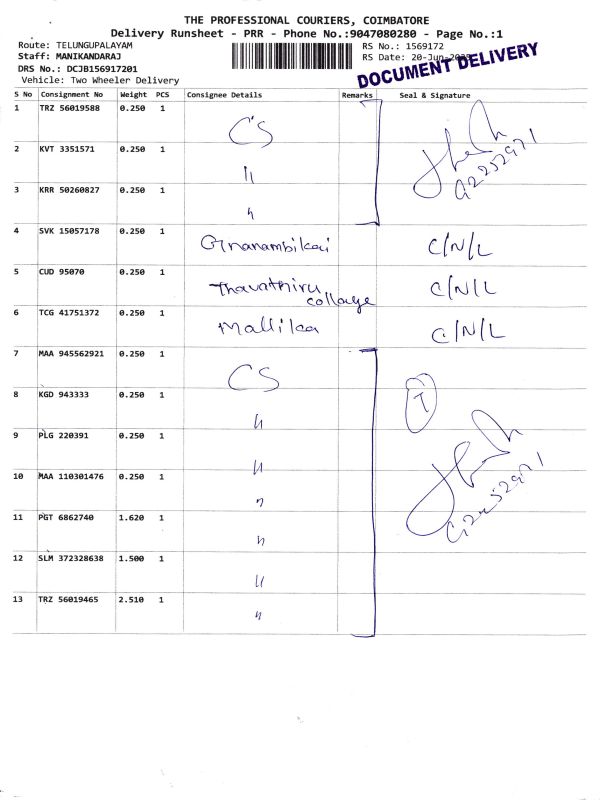 THE PROFESSIONAL COURIERS, COIMBATORE
Delivery Runsheet - PRR - Phone No.:9047080280 - Page No.:1
Route: TELUNGUPALAYAM
Staff: MANIKANDARAJ
DRS No.: DCJB156917201
Vehicle: Two Wheeler Delivery
RS No.: 1569172
RS Date: 20-Jun
DOCUMENT DELIVERY
S No Consignment No Weight PCS Consignee Details Remarks Seal & Signature
1 TRZ 56019588 0.250 1 CS
2 KVT 3351571 0.250 1 "
G2252971
3 KRR 50260827 0.250 1 "
4 SVK 15057178 0.250 1 Gnanambikai C/N/L
5 CUD 95070 0.250 1 Thavathiru collage C/N/L
6 TCG 41751372 0.250 1 Mallika C/N/L
7 MAA 945562921 0.250 1 CS
8 KGD 943333 0.250 1 "
9 PLG 220391 0.250 1 "
10 MAA 110301476 0.250 1 "
G2252971
11 PGT 6862740 1.620 1 "
12 SLM 372328638 1.500 1 "
13 TRZ 56019465 2.510 1 "